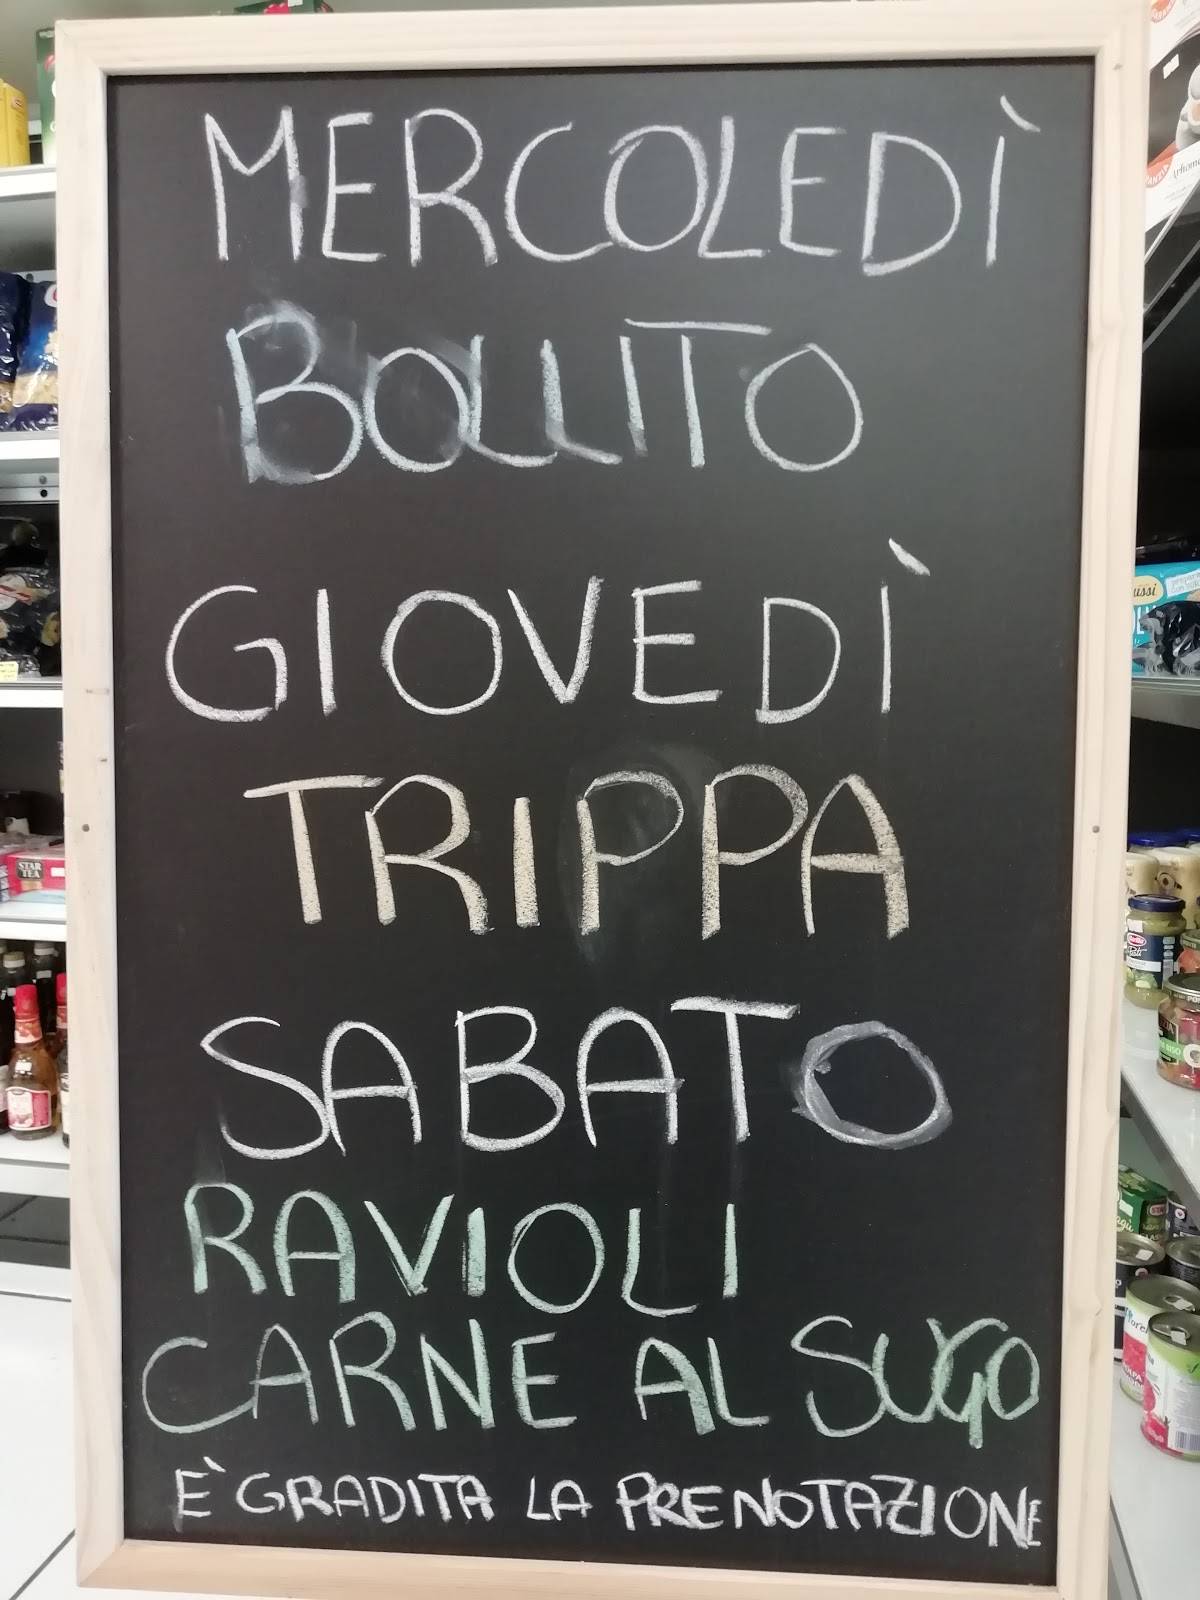 MERCOLEDÌ
BOLLITO
GIOVEDÌ
TRIPPA
SABATO
RAVIOLI
CARNE AL SUGO
E' GRADITA LA PRENOTAZIONE
STAR
TEA